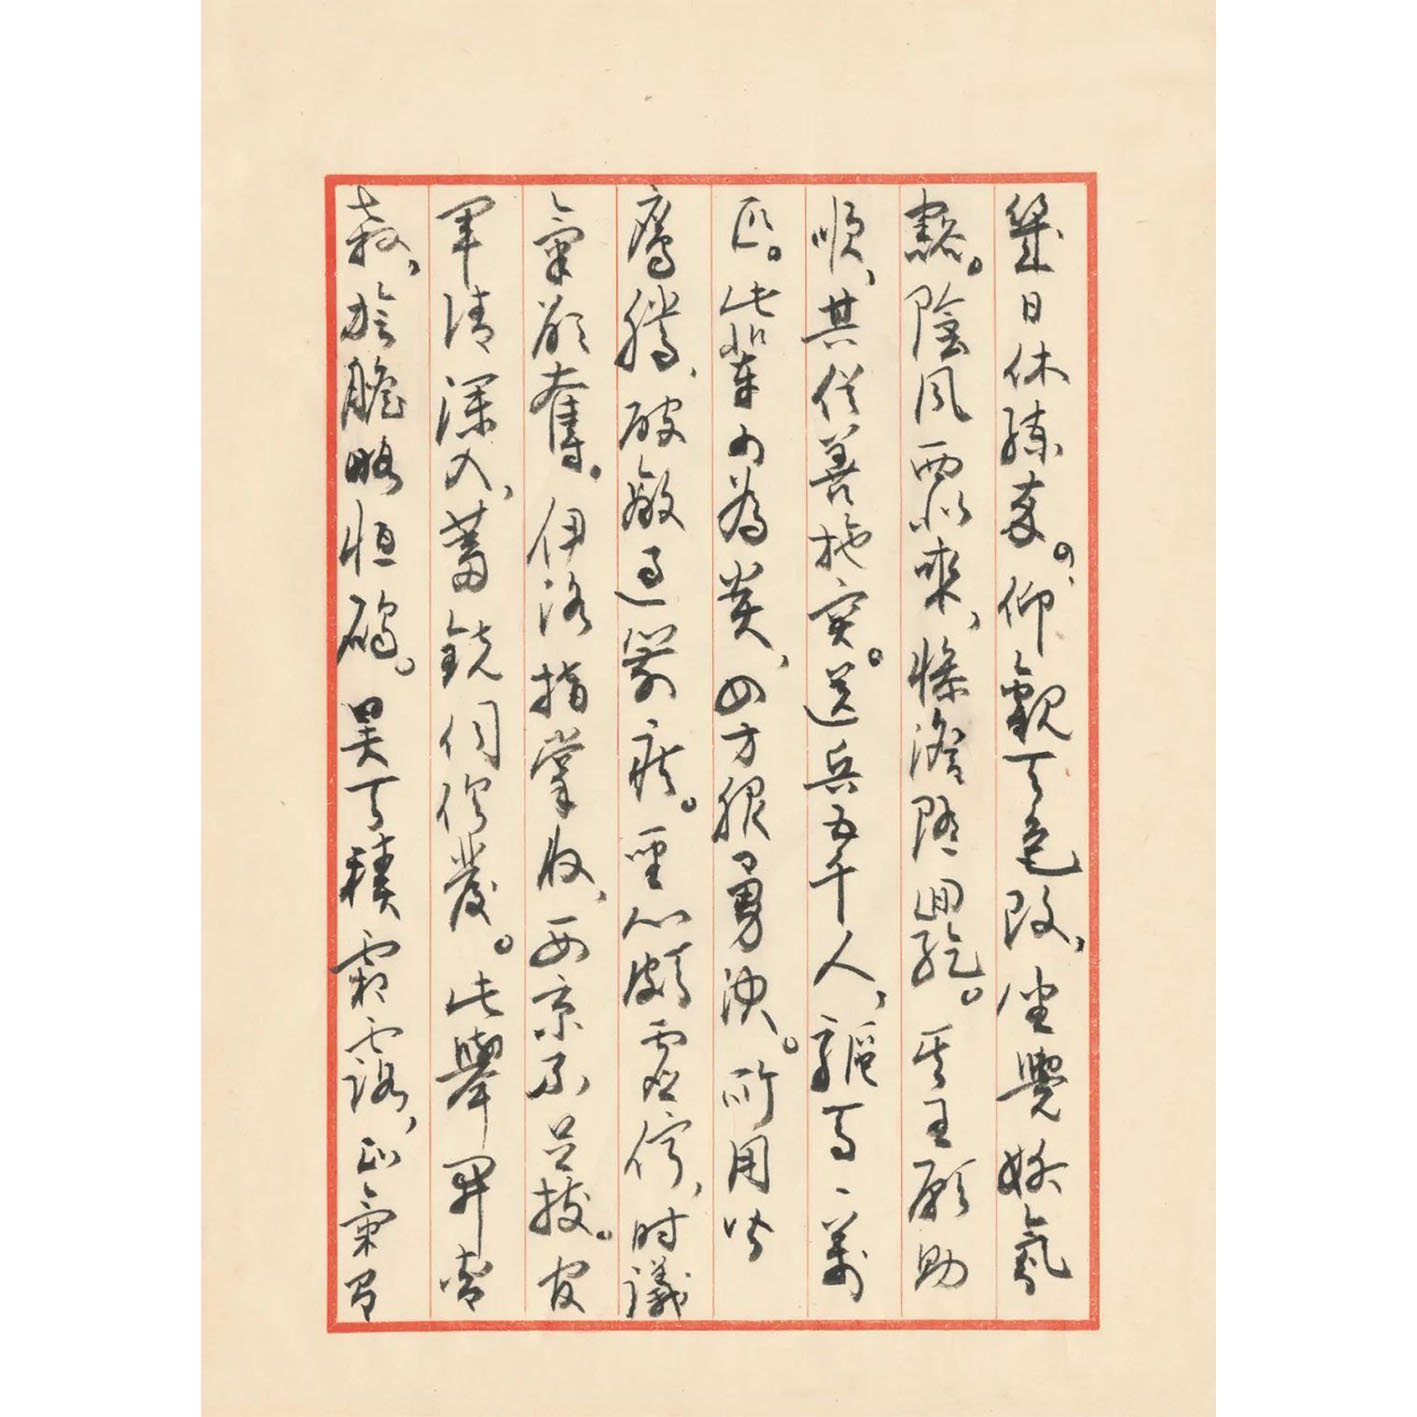 幾日休練卒。仰觀天色改，坐覺妖氛
豁。陰風西北來，慘澹隨回紇。其王願助
順，其俗善馳突。送兵五千人，驅馬一萬
匹。此輩少為貴，四方服勇決。所用皆
鷹騰，破敵過箭疾。聖心頗虛佇，时議
氣欲奪。伊洛指掌收，西京不足拔。官
軍請深入，蓄銳伺俱發。此舉開青
徐，旋瞻略恒碣。昊天積霜露，正氣有